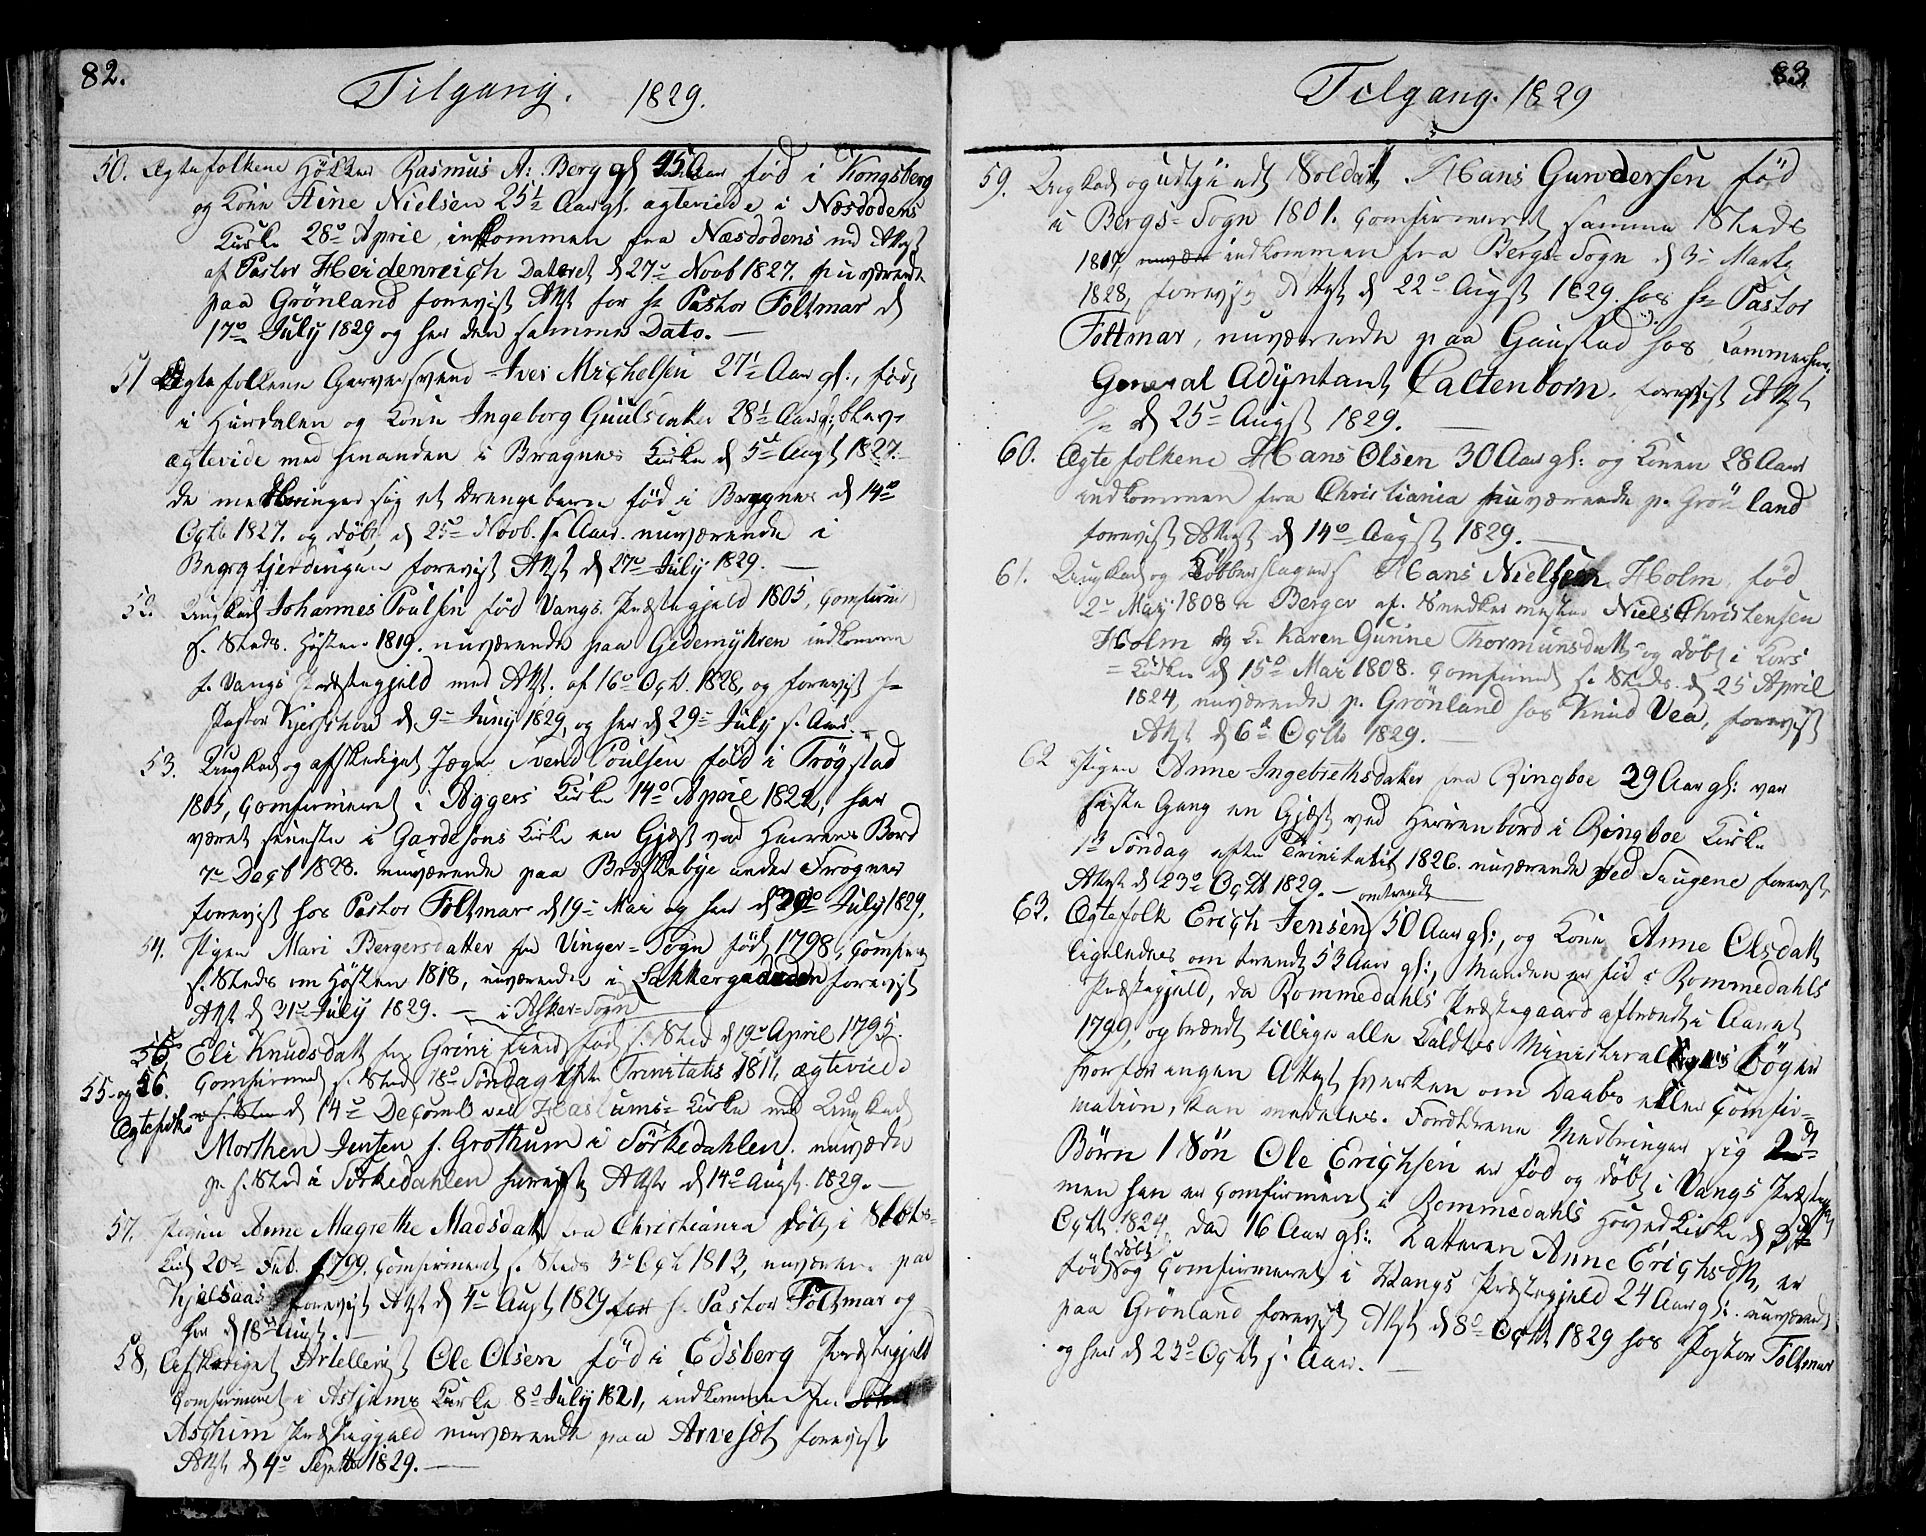 82.
Tilgang. 1829.
50. Ægtefolkene Høker Rasmus A: Berg gl 45 Aar fød i Kongsberg
og Kone Stine Nielsen 25½ Aar gl. ægteviede i Næsoddens
Kirke 28de April, indkommen fra Næsoddens med Attst
af Pastor Heidenreich Dateret d 27de Novb 1827. nuværende
paa Grönland foreviist Attst for hr Pastor Foltmar d
17de July 1829 og her den samme Dato.
51 Ægtefolkene Garversvend Iver Michelsen 27½ Aar gl., født
i Hurdalen og Kone Ingeborg Guulsdatter 28½ Aar gl: blev
ægtevide med hinanden i Bragnes Kirke d 5te Augt 1827.
de medbringer sig et Drengebarn fød i Bragnes d 14de
Octb 1827. og døbt d 25de Novb. s. Aar. nuværende i
fjerdingen foreviist Attst d 27de July 1829.
52. Ungkarl Johannes Poulsen fød Vangs Præstegjeld 1805, Comfirm
s. Steds. Høsten 1819. nuværende paa Gedemyhren indkommen
f. Vangs Præstegjeld med Attst. af 16de Oct. 1828, og foreviist hr
Pastor Kjershow d. 9de Juny 1829, og her d 29de July s. Aar.
53. Ungkarl og afskediget Jæger Svend Poulsen fød i Trögstad
1805, Comfirmeret i Aggers Kirke 14de April 1822, har
været seneste i Gardesöns Kirke en Gjæst ved Herrens Bord
7de Decb 1828. nuværende paa Bröstebye under Frogner
foreviist hos Pastor Foltmar d 19de Mai og her d 29de July 1829.
54. Pigen Mari Bergersdatter fra Vinger-Sogn fød 1798, Comfirm
s. Steds om Høsten 1818, nuværende i Lakkergaden foreviist
Attst d 31te July 1829. — i Asker-Sogn
55 Eli Knudsdatt fra Grini fød s. Sted d 19de April 1795.
55 og 56. Comfirmert s. Sted 18de Søndag efter Trinitatis 1811, ægteviede
Ægtefolk s. Sted d 14de Decemb ved Haslums-Kirke med Ungkarl
Morthen Jensen f. Grothum i Sörkedahlen. nuværende
p. s. Sted i Sörkedahlen foreviist Attst d 14de Augst. 1829.
57. Pigen Anne Magrethe Madsdatt fra Christiania døbt i Slots-
Kirk 20de Feb. 1799. Comfirmeret s. Steds 3de Oct 1813, nuværen. paa
Kjelsaas foreviist Attst d 4de Augt 1829 for hr Pastor Foltmar og
her d 18de Augt.
58, Afskediget Artellerist Ole Olsen fød i Edsberg Præstegjeld
Comfirmeret i Askims Kirke 8de July 1821, indkommen fra
Aschim Præstegjeld nuværende paa Arvesæt foreviist
Attst d 4de Septb 1829.
83
Tilgang. 1829
59. Ungkarl og udtjendt Soldat Hans Gundersen fød
i Bergs-Sogn 1801. Comfirmeret samme Steds
1817, indkommen fra Bergs-Sogn d 3de Marts
1828, foreviist Attst d 22de Augst 1829. hos hr Pastor
Foltmar, nuværende paa Gaustad hos Kammerherre
General Adjutant Caltenborn. foreviist Attst
d 25de Augst 1829.
60. Ægtefolkene Hans Olsen 30 Aar gl: og Konen 28 Aar
indkommen fra Christiania nuværende p. Grönland
foreviist Attst d 14de Augst 1829.
61. Ungkarl og Kobberslager Hans Nielsen Holm, fød
2de May 1808 i Bergen af Snedkermester Niels Christensen
Holm og K. Karen Gurine Thormunsdatt og døbt i Kors
-Kirken d 15de Mai 1808. Comfirmert s. Steds. d 25 April
1824, nuværende p. Grönland hos Knud Vea, foreviist
Attst d 6te Octb 1829.
62 Pigen Anne Ingebrethsdatter fra Ringboe 29 Aar gl: var
sidste Gang en Gjæst ved Herrens bord i Ringboe Kirke
1te Søndag efter Trinitatis 1826. nuværende ved Saugene foreviist
Attst d 23de Octb 1829. — omtrendt
63. Ægtefolk Erich Jensen 50 Aar gl:, og Kone Anne Olsdatt
ligeledes omtrendt 53 Aar gl:, Manden er fød i Rommedahls
Præstegjeld, da Rommedahls Præstegaard afbrændt i Aaret
1799, og brændt tillige alle Kaldets Ministerial Bøger
hvorfor ingen Attst hverken om Daabs eller Comfir-
mation, kan medeeles. Forældrene Medbringer sig 2de
Børn 1 Søn Ole Erichsen er fød og døbt i Vangs Præstegj
men han er Comfirmeret i Rommedahls Hovedkirke d 3de
Octb 1824, da 16 Aar gl: Datteren Anne Erichsdtt, er
fød, døbt og Comfirmeret i Wangs Præstegjeld 24 Aar gl: nuværend
paa Grönland foreviist Attst d 8de Octb 1829 hos Pastor Foltmar
og her d 23de Octb s. Aar.